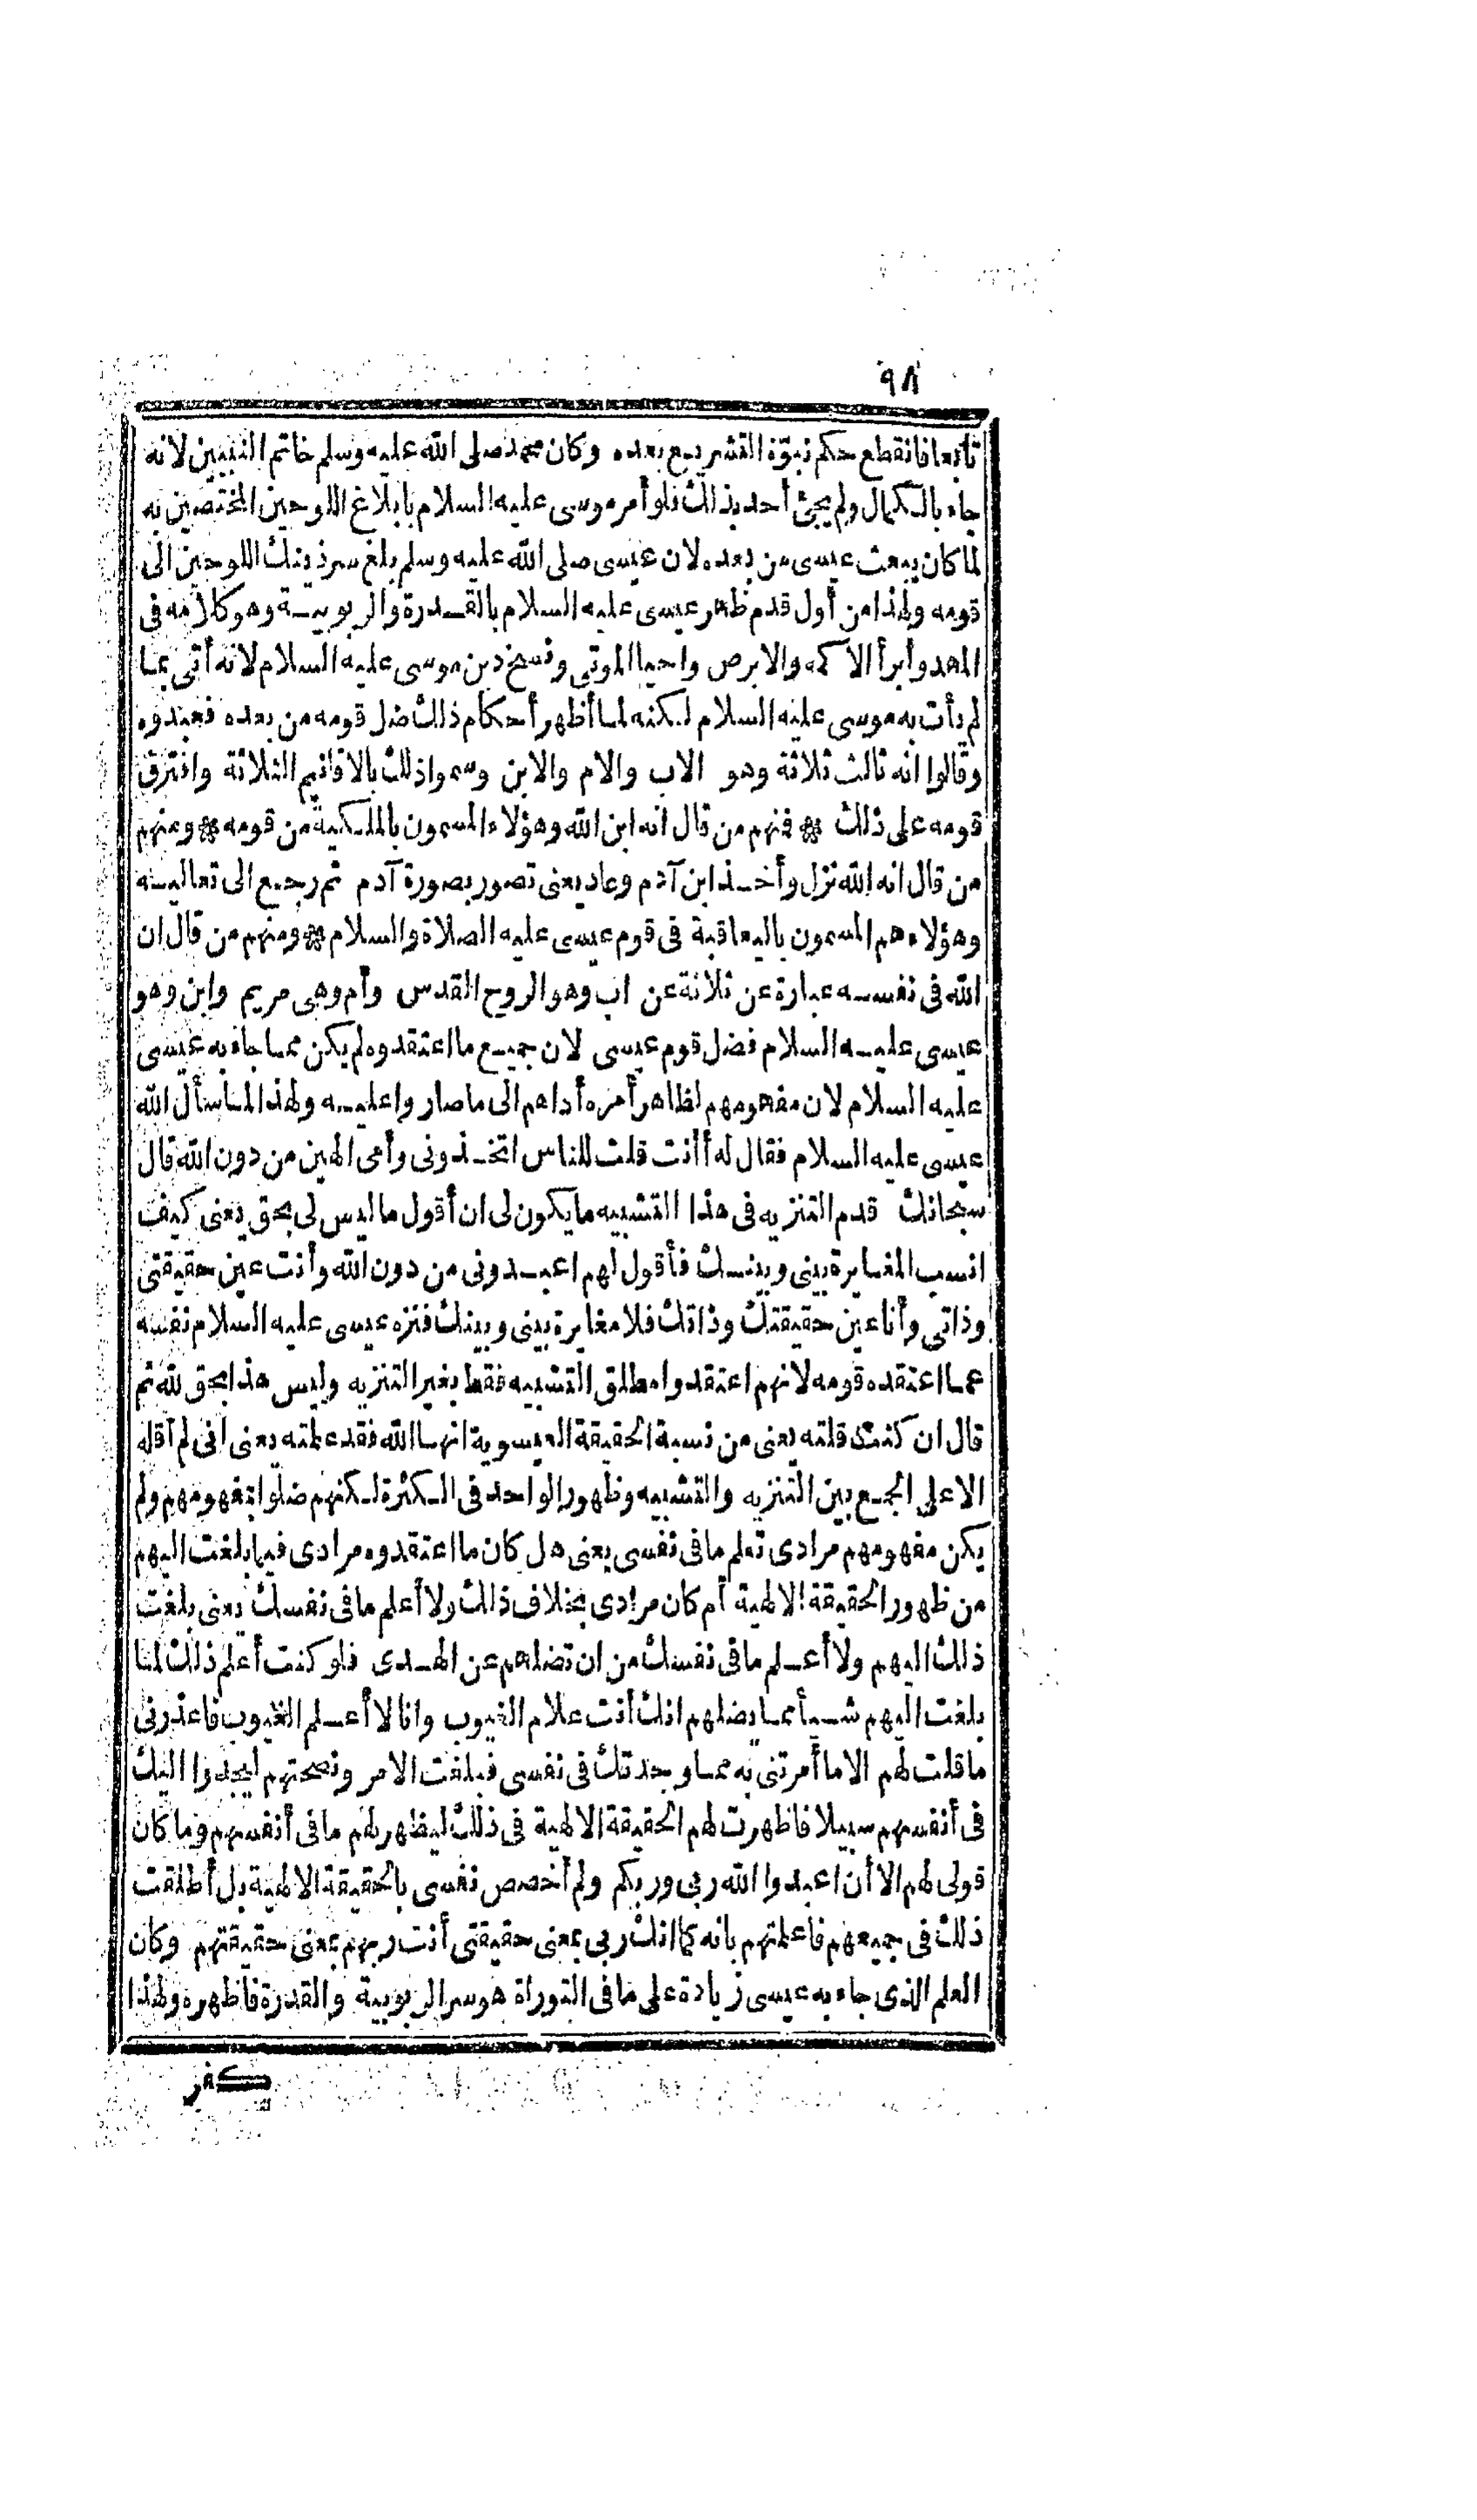 ٩٨
تابعا فانقطع حكم نبوّة التشريع بعده وكان محمد صلى الله عليه وسلم خاتم النبيين لانه
جاء بالكمال ولم يجئ أحد بذلك فلو أمر موسى عليه السلام بابلاغ اللوحين المختصين به
لما كان يبعث عيسى من بعده لان عيسى صلى الله عليه وسلم بلغ سر ذينك اللوحين الى
قومه ولهذا من أول قدم ظهر عيسى عليه السلام بالقدرة والربوبية وهو كلامه فى
المهد وأبرأ الاكمه والابرص واحيا الموتى ونسخ دين موسى عليه السلام لانه أتى بما
لم يأت به موسى عليه السلام لكنه لما أظهر أحكام ذلك ضل قومه من بعده فعبدوه
وقالوا انه ثالث ثلاثة وهو الاب والام والابن وسموا ذلك بالاقانيم الثلاثة وافترق
قومه على ذلك * فنهم من قال انه ابن الله وهؤلاء المسمون بالملكية من قومه * ومنهم
من قال انه الله نزل وأخذ ابن آدم وعاد يعنى تصور بصورة آدم ثم رجع الى تعاليه
وهؤلاء هم المسمون باليعاقبة فى قوم عيسى عليه الصلاة والسلام * ومنهم من قال ان
الله فى نفسه عبارة عن ثلاثة عن اب وهو الروح القدس وأم وهى مريم وابن وهو
عيسى عليه السلام فضل قوم عيسى لان جميع ما اعتقدوه لم يكن مما جاء به عيسى
عليه السلام لان مفهومهم لظاهر أمره أداهم الى ما صاروا عليه ولهذا لما سأل الله
عيسى عليه السلام فقال له أأنت قلت للناس اتخذونى وأمى الهين من دون الله قال
سبحانك قدم التنزيه فى هذا التشبيه ما يكون لى ان أقول ما ليس لى بحق يعنى كيف
انسب المغايرة بينى وبينك فأقول لهم اعبدونى من دون الله وأنت عين حقيقتى
وذاتى وأنا عين حقيقتك وذاتك فلا مغايرة بينى وبينك فنزه عيسى عليه السلام نفسه
عما اعتقده قومه لانهم اعتقدوا مطلق التشبيه فقط بغير التنزيه وليس هذا بحق لله ثم
قال ان كنت قلته يعنى من نسبة الحقيقة العيسوية انها الله فقد علمته يعنى انى لم أقله
الا على الجمع بين التنزيه والتشبيه وظهور الواحد فى الكثرة لكنهم ضلوا بمفهومهم ولم
يكن مفهومهم مرادى تعلم ما فى نفسى يعنى هل كان ما اعتقدوه مرادى فيما بلغت اليهم
من ظهور الحقيقة الالهية أم كان مرادى بخلاف ذلك ولا أعلم ما فى نفسك يعنى بلغت
ذلك اليهم ولا أعلم ما فى نفسك من ان تضلهم عن الهدى فلو كنت أعلم ذلك لما
بلغت اليهم شيأ مما يضلهم انك أنت علام الغيوب وانا لا أعلم الغيوب فاعذرنى
ما قلت لهم الا ما أمرتنى به مما وجدتك فى نفسى فبلغت الامر ونصحتهم ليجدوا اليك
فى أنفسهم سبيلا فاظهرت لهم الحقيقة الالهية فى ذلك ليظهر لهم ما فى أنفسهم وما كان
قولى لهم الا أن اعبدوا الله ربى وربكم ولم أخصص نفسى بالحقيقة الالهية بل أطلقت
ذلك فى جميعهم فاعلمتهم بانه كما انك ربى بمعنى حقيقتى أنت ربهم بمعنى حقيقتهم وكان
العلم الذى جاء به عيسى زيادة على ما فى التوراة هو سر الربوبية والقدرة فاظهره ولهذا
كفر